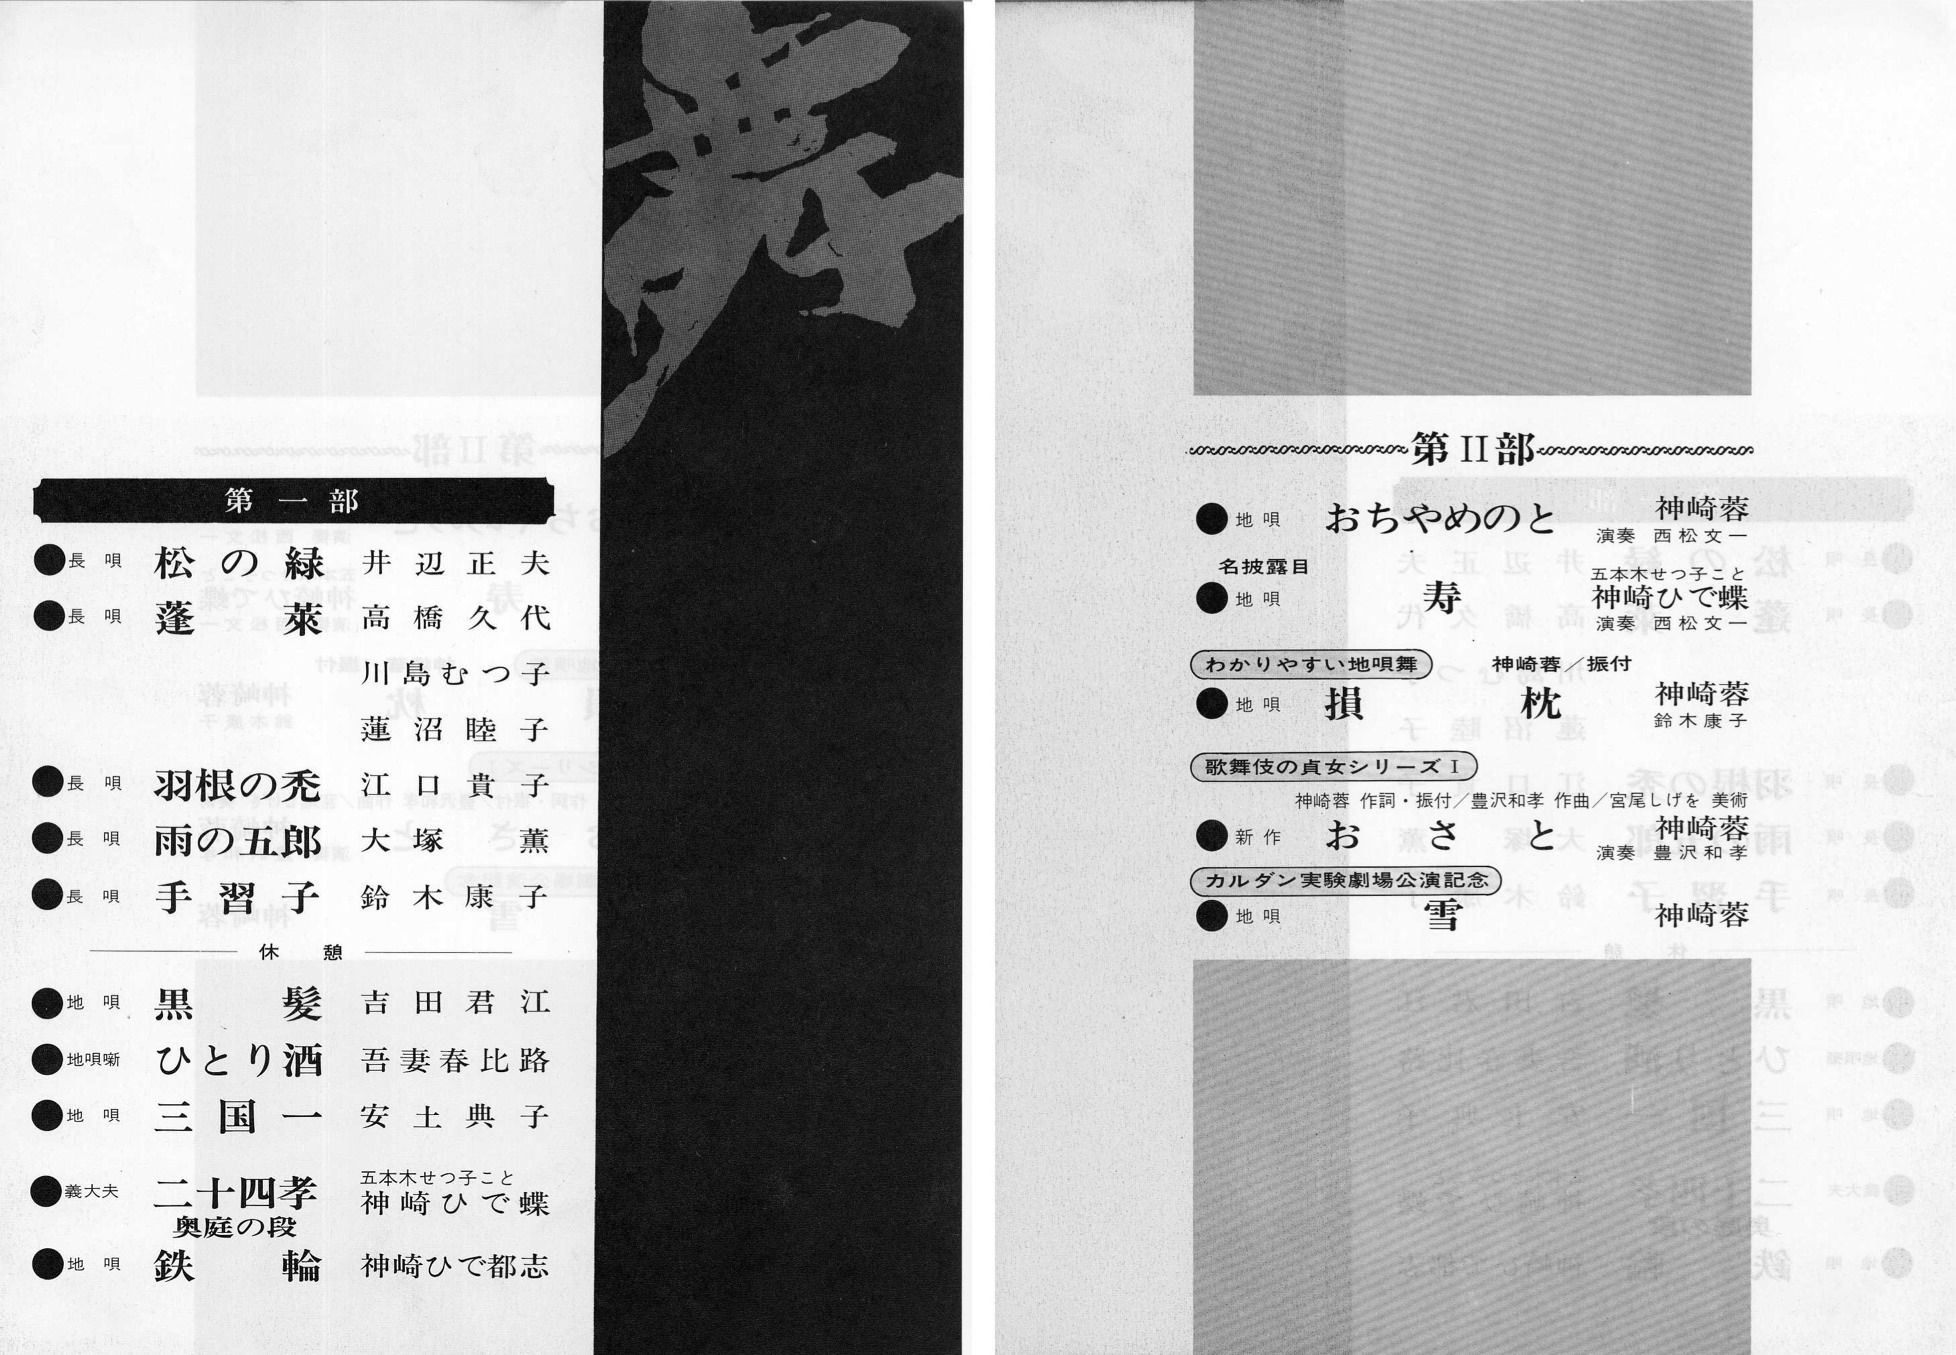 舞
第一部
●長唄 松の緑 井辺正夫
●長唄 蓬萊 高橋久代
川島むつ子
蓮沼睦子
●長唄 羽根の禿 江口貴子
●長唄 雨の五郎 大塚薫
●長唄 手習子 鈴木康子
休憩
●地唄 黒髪 吉田君江
●地唄噺 ひとり酒 吾妻春比路
●地唄 三国一 安土典子
五本木せつ子こと
●義大夫 二十四孝 神崎ひで蝶
奥庭の段
●地唄 鉄輪 神崎ひで都志
第II部
●地唄 おちやめのと 神崎蓉
演奏 西松文一
名披露目
五本木せつ子こと
●地唄 寿 神崎ひで蝶
演奏 西松文一
わかりやすい地唄舞 神崎蓉／振付
●地唄 損 枕 神崎蓉
鈴木康子
歌舞伎の貞女シリーズI
神崎蓉 作詞・振付／豊沢和孝 作曲／宮尾しげを 美術
●新作 おさと 神崎蓉
演奏 豊沢和孝
カルダン実験劇場公演記念
●地唄 雪 神崎蓉